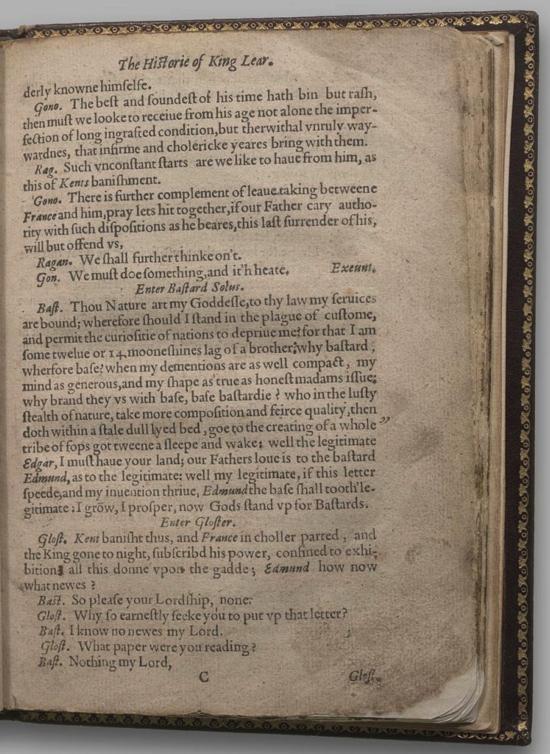 The Hiſtorie of King Lear.
derly knowne himſelfe.
Gono. The beſt and ſoundeſt of his time hath bin but raſh,
then muſt we looke to receiue from his age not alone the imper-
fection of long ingrafted condition, but therwithal vnruly way-
wardnes, that infirme and cholericke yeares bring with them.
Rag. Such vnconſtant ſtarts are we like to haue from him, as
this of Kents baniſhment.
Gono. There is further complement of leaue taking betweene
France and him, pray lets hit together, if our Father cary autho-
rity with ſuch diſpoſitions as he beares, this laſt ſurrender of his,
will but offend vs,
Ragan. We ſhall further thinke on't.
Gon. We muſt doe ſomething, and it'h heate. Exeunt.
Enter Baſtard Solus.
Baſt. Thou Nature art my Goddeſſe, to thy law my ſeruices
are bound; wherefore ſhould I ſtand in the plague of cuſtome,
and permit the curioſitie of nations to depriue me? for that I am
ſome twelue or 14, mooneſhines lag of a brother; why baſtard,
wherfore baſe? when my dementions are as well compact, my
mind as generous, and my ſhape as true as honeſt madams iſſue;
why brand they vs with baſe, baſe baſtardie? who in the luſty
ſtealth of nature, take more compoſition and feirce quality, then
doth within a ſtale dull lyed bed, goe to the creating of a whole
tribe of fops got tweene a ſleepe and wake; well the legitimate
Edgar, I muſt haue your land; our Fathers loue is to the baſtard
Edmund, as to the legitimate: well my legitimate, if this letter
ſpeede, and my inuention thriue, Edmund the baſe ſhall tooth'le-
gitimate: I grow, I proſper, now Gods ſtand vp for Baſtards.
Enter Gloſter.
Gloſt. Kent baniſht thus, and France in choller parted, and
the King gone to night, ſubſcribd his power, confined to exhi-
bition, all this donne vpon the gadde; Edmund how now
what newes?
Baſt. So pleaſe your Lordſhip, none:
Gloſt. Why ſo earneſtly ſeeke you to put vp that letter?
Baſt. I know no newes my Lord.
Gloſt. What paper were you reading?
Baſt. Nothing my Lord,
C Gloſt.